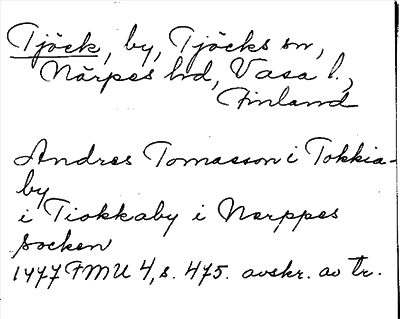 Tjöck, by, Tjöcks sn,
Närpes hd, Vasa l.,
Finland
Andres Tomasson i Tokkia-
by
i Tiokkaby i Nerppes
socken
1477 FMU 4, s. 475. avskr. av tr.